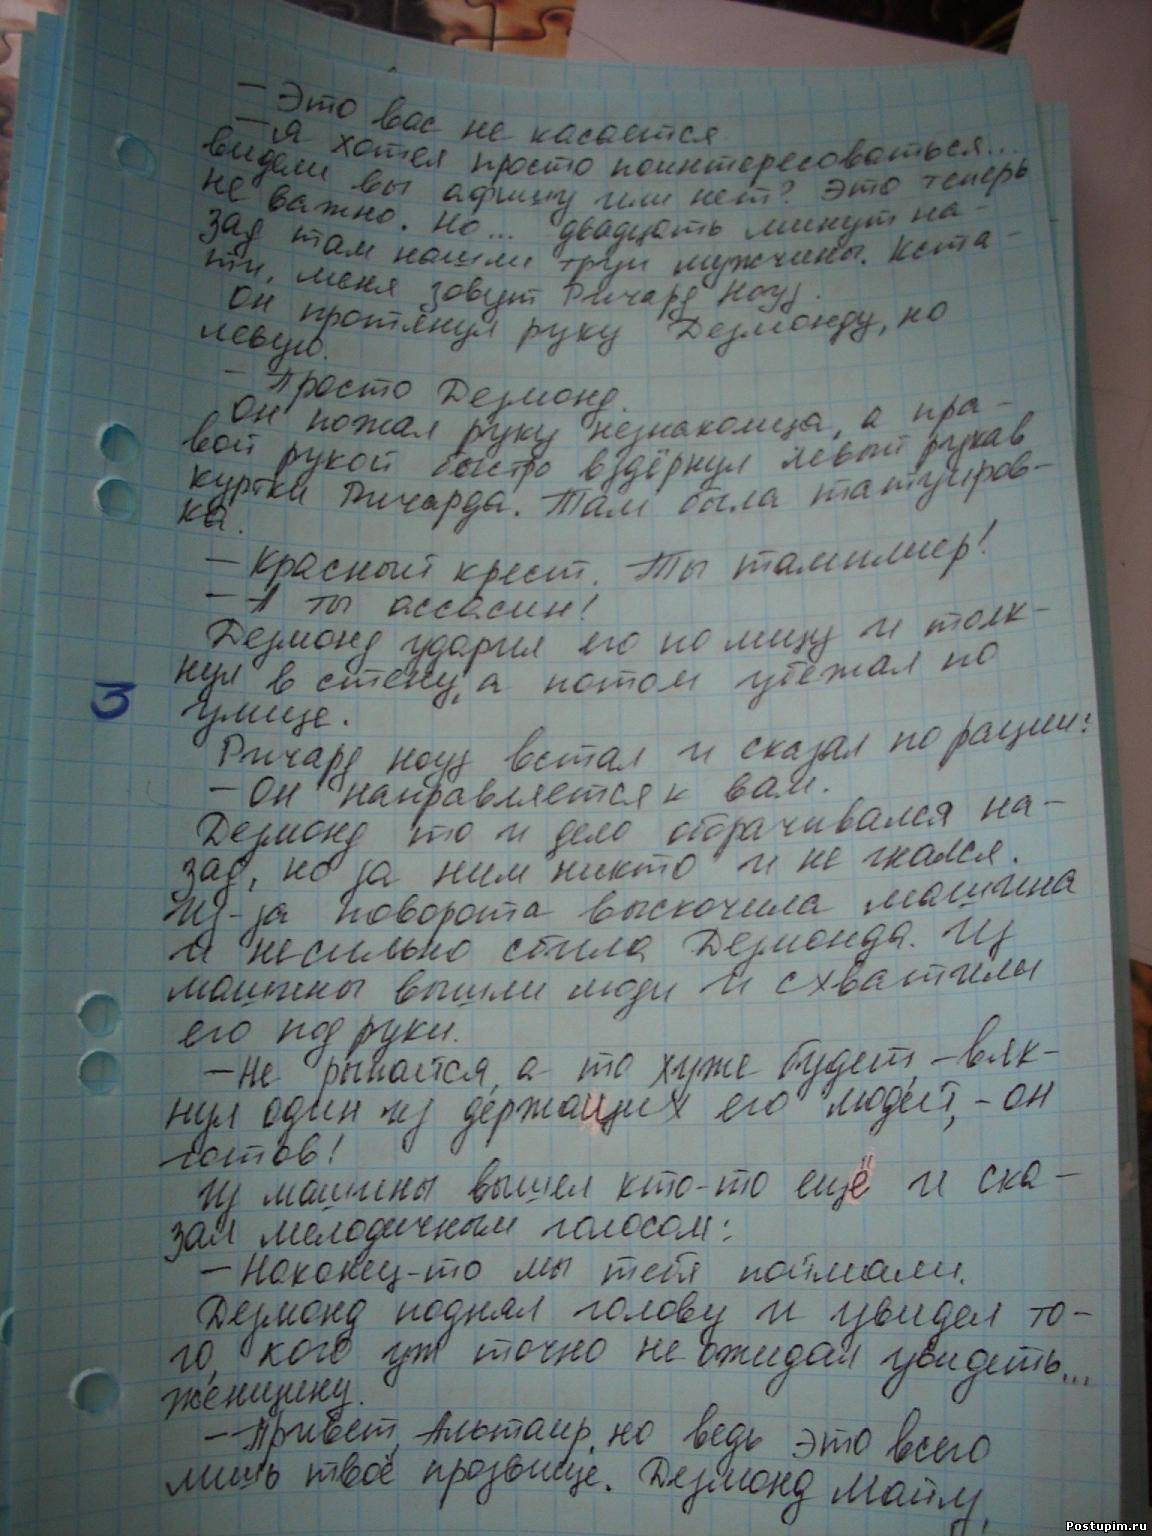 — Это вас не касается.
— Я хотел просто поинтересоваться...
видели вы афишу или нет? Это теперь
не важно. Но... двадцать минут на-
зад там нашли труп мужчины. Кста-
ти, меня зовут Ричард Ноуз.
Он протянул руку Дезмонду, но
левую.
— Просто Дезмонд.
Он пожал руку незнакомца, а пра-
вой рукой быстро вздёрнул левый рукав
куртки Ричарда. Там была татуиров-
ка.
— Красный крест. Ты тамплиер!
— А ты ассасин!
Дезмонд ударил его по лицу и толк-
нул в стену, а потом убежал по
улице.
3
Ричард Ноуз встал и сказал по рации:
— Он направляется к вам.
Дезмонд то и дело оборачивался на-
зад, но за ним никто и не гнался.
Из-за поворота выскочила машина
и несильно сбила Дезмонда. Из
машины вышли люди и схватили
его под руки.
— Не рыпается, а то хуже будет, – вяк-
нул один из держащих его людей, – он
готов!
Из машины вышел кто-то ещё и ска-
зал мелодичным голосом:
— Наконец-то мы тебя поймали.
Дезмонд поднял голову и увидел то-
го, кого уж точно не ожидал увидеть...
женщину.
— Привет, Альтаир, но ведь это всего
лишь твоё прозвище. Дезмонд Майлз,
Postupim.ru